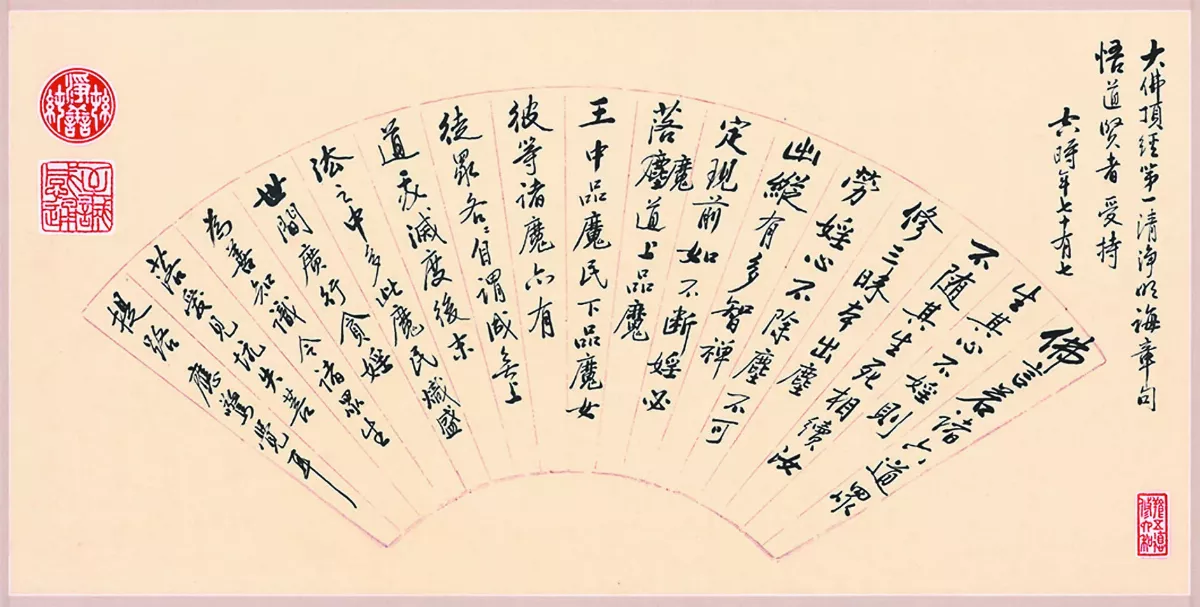 大佛頂經第一清淨明誨章句
悟道賢者受持
時年七十有七
佛言若諸六道眾
生其心不婬則
不隨其生死相續汝
修三昧本出塵
勞婬心不除塵不可
出縱有多智禪
定現前如不斷婬必
落魔塵道上品魔
王中品魔民下品魔女
彼等諸魔亦有
徒眾各各自謂成無上
道我滅度後末
法之中多此魔民熾盛
世間廣行貪婬
為善知識令諸眾生
落愛見坑失菩
提路應驚覺耳
至誠感通